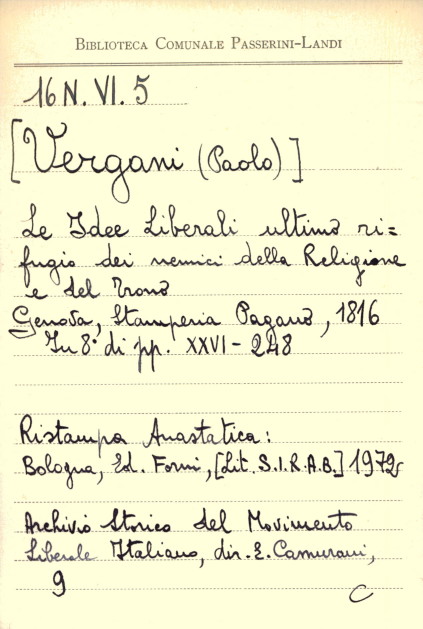 BIBLIOTECA COMUNALE PASSERINI-LANDI
16 N. VI. 5
[Vergani (Paolo)]
Le Idee Liberali ultimo ri=
fugio dei nemici della Religione
e del Trono
Genova, Stamperia Pagano, 1816
In 8° di pp. XXVI - 248
Ristampa Anastatica:
Bologna, Ed. Forni, [Lit. S.I.R.A.B.] 1972
Archivio Storico del Movimento
Liberale Italiano, dir. E. Camurani,
9
C